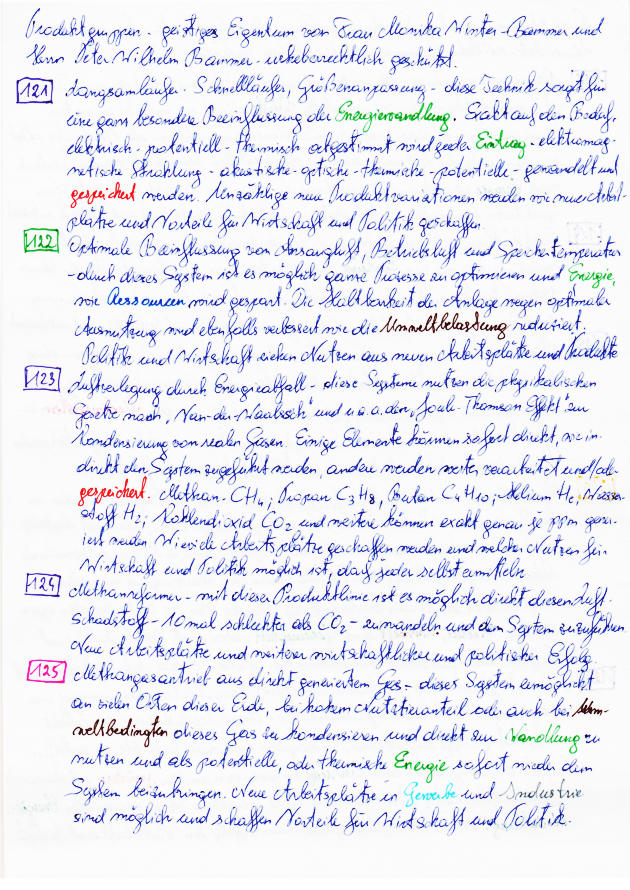 Produktgruppen - geistiges Eigentum von Frau Monika Winter-Bammer und
Herrn Peter Wilhelm Bammer - urheberrechtlich geschützt.
121 Langsamläufer - Schnellläufer, Größenanpassung - diese Technik sorgt für
eine ganz besondere Beeinflussung der Energiewandlung. Exakt auf den Bedarf,
elektrisch - potentiell - thermisch abgestimmt wird jeder Eintrag - elektromag-
netische Strahlung - akustische - optische - thermische - potentielle - gewandelt und
gespeichert werden. Unzählige neue Produktvariationen werden wie neue Arbeits-
plätze und Vorteile für Wirtschaft und Politik geschaffen.
122 Optimale Beeinflussung von Ansaugluft, Betriebsluft und Speichertemperatur
- durch dieses System ist es möglich ganze Prozesse zu optimieren und Energie,
wie Ressourcen wird gespart. Die Haltbarkeit der Anlage wegen optimaler
Ausnutzung wird ebenfalls verbessert wie die Umweltbelastung reduziert.
Politik und Wirtschaft ziehen Nutzen aus neuen Arbeitsplätze und Produkte
123 Luftzerlegung durch Energieabfall - diese Systeme nutzen die physikalischen
Gesetze nach "Van-der-Waalssch" und u.a. den "Joule-Thomson Effekt" zur
Kondensierung von realen Gasen. Einige Elemente können sofort direkt, wie in-
direkt dem System zugeführt werden, andere werden weiter verarbeitet und/oder
gespeichert. Methan - CH4; Propan C3H8, Butan C4H10; Helium He, Wasser-
stoff H2; Kohlendioxid CO2 und weitere können exakt genau je ppm gene-
riert werden Wieviele Arbeitsplätze geschaffen werden und welcher Nutzen für
Wirtschaft und Politik möglich ist, darf jeder selbst ermitteln
124 Methanreformer - mit dieser Produktlinie ist es möglich direkt diesen Luft-
schadstoff - 10 mal schlechter als CO2 - zu wandeln und dem System zuzuführen
Neue Arbeitsplätze und weiterer wirtschaftlicher und politischer Erfolg.
125 Methangasantrieb aus direkt generiertem Gas - dieses System ermöglicht
an vielen Orten dieser Erde, bei hohem Nutztieranteil oder auch bei Um-
weltbedingten dieses Gas zu kondensieren und direkt zur Wandlung zu
nutzen und als potentielle, oder thermische Energie sofort wieder dem
System beizubringen. Neue Arbeitsplätze in Gewerbe und Industrie
sind möglich und schaffen Vorteile für Wirtschaft und Politik.